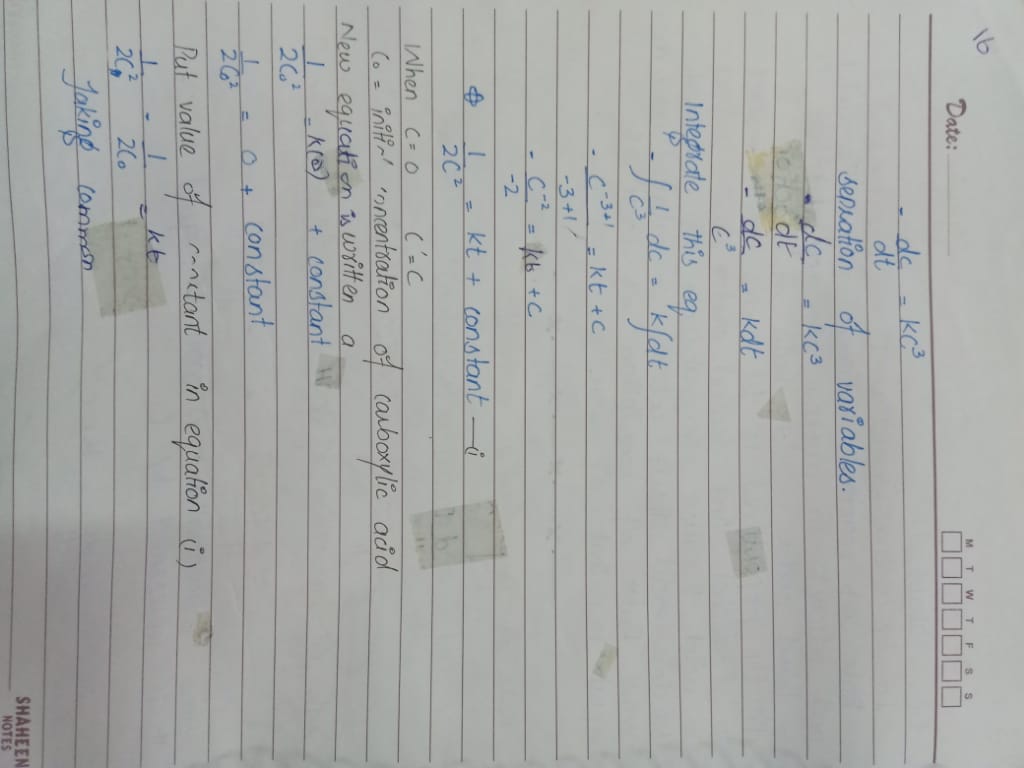 16
Date:
M T W T F S S
- dc/dt = kc³
seruation of variables.
- dc/dt = kc³
- dc/c³ = kdt
Integrate this eq
- ∫ 1/c³ dc = k∫dt
- c⁻³⁺¹/-3+1 = kt + c
- c⁻²/-2 = kt + c
1/2C² = kt + constant — i
When c = 0 C = C
C₀ = of carboxylic acid
New equation is written a
1/2C₀² = k(0) + constant
1/2C₀² = 0 + constant
Put value of in equation (i)
1/2C² - 1/2C₀ = kt
Taking common
SHAHEEN
NOTES